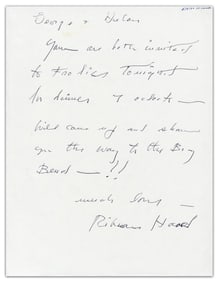 George + Helen
You are both invited
to Froelics Tonight
for dinner 7 oclock —
We'll come up and show
you the way to the Big
Bend — !!
much love —